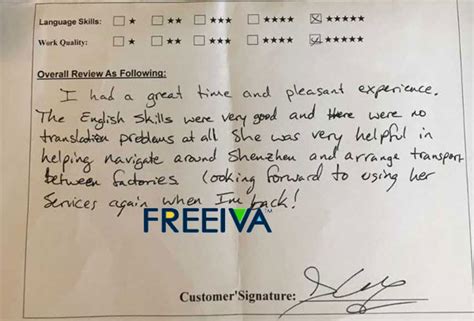 Language Skills: ☐★ ☐★★ ☐★★★ ☐★★★★ ☒★★★★★
Work Quality: ☐★ ☐★★ ☐★★★ ☐★★★★ ☑★★★★★
Overall Review As Following:
I had a great time and pleasant experience.
The English Skills were very good and there were no
translation problems at all She was very helpful in
helping navigate around Shenzhen and arrange transport
between factories. Looking forward to using her
Services again when I'm back!
FREEIVA™
Customer'Signature: